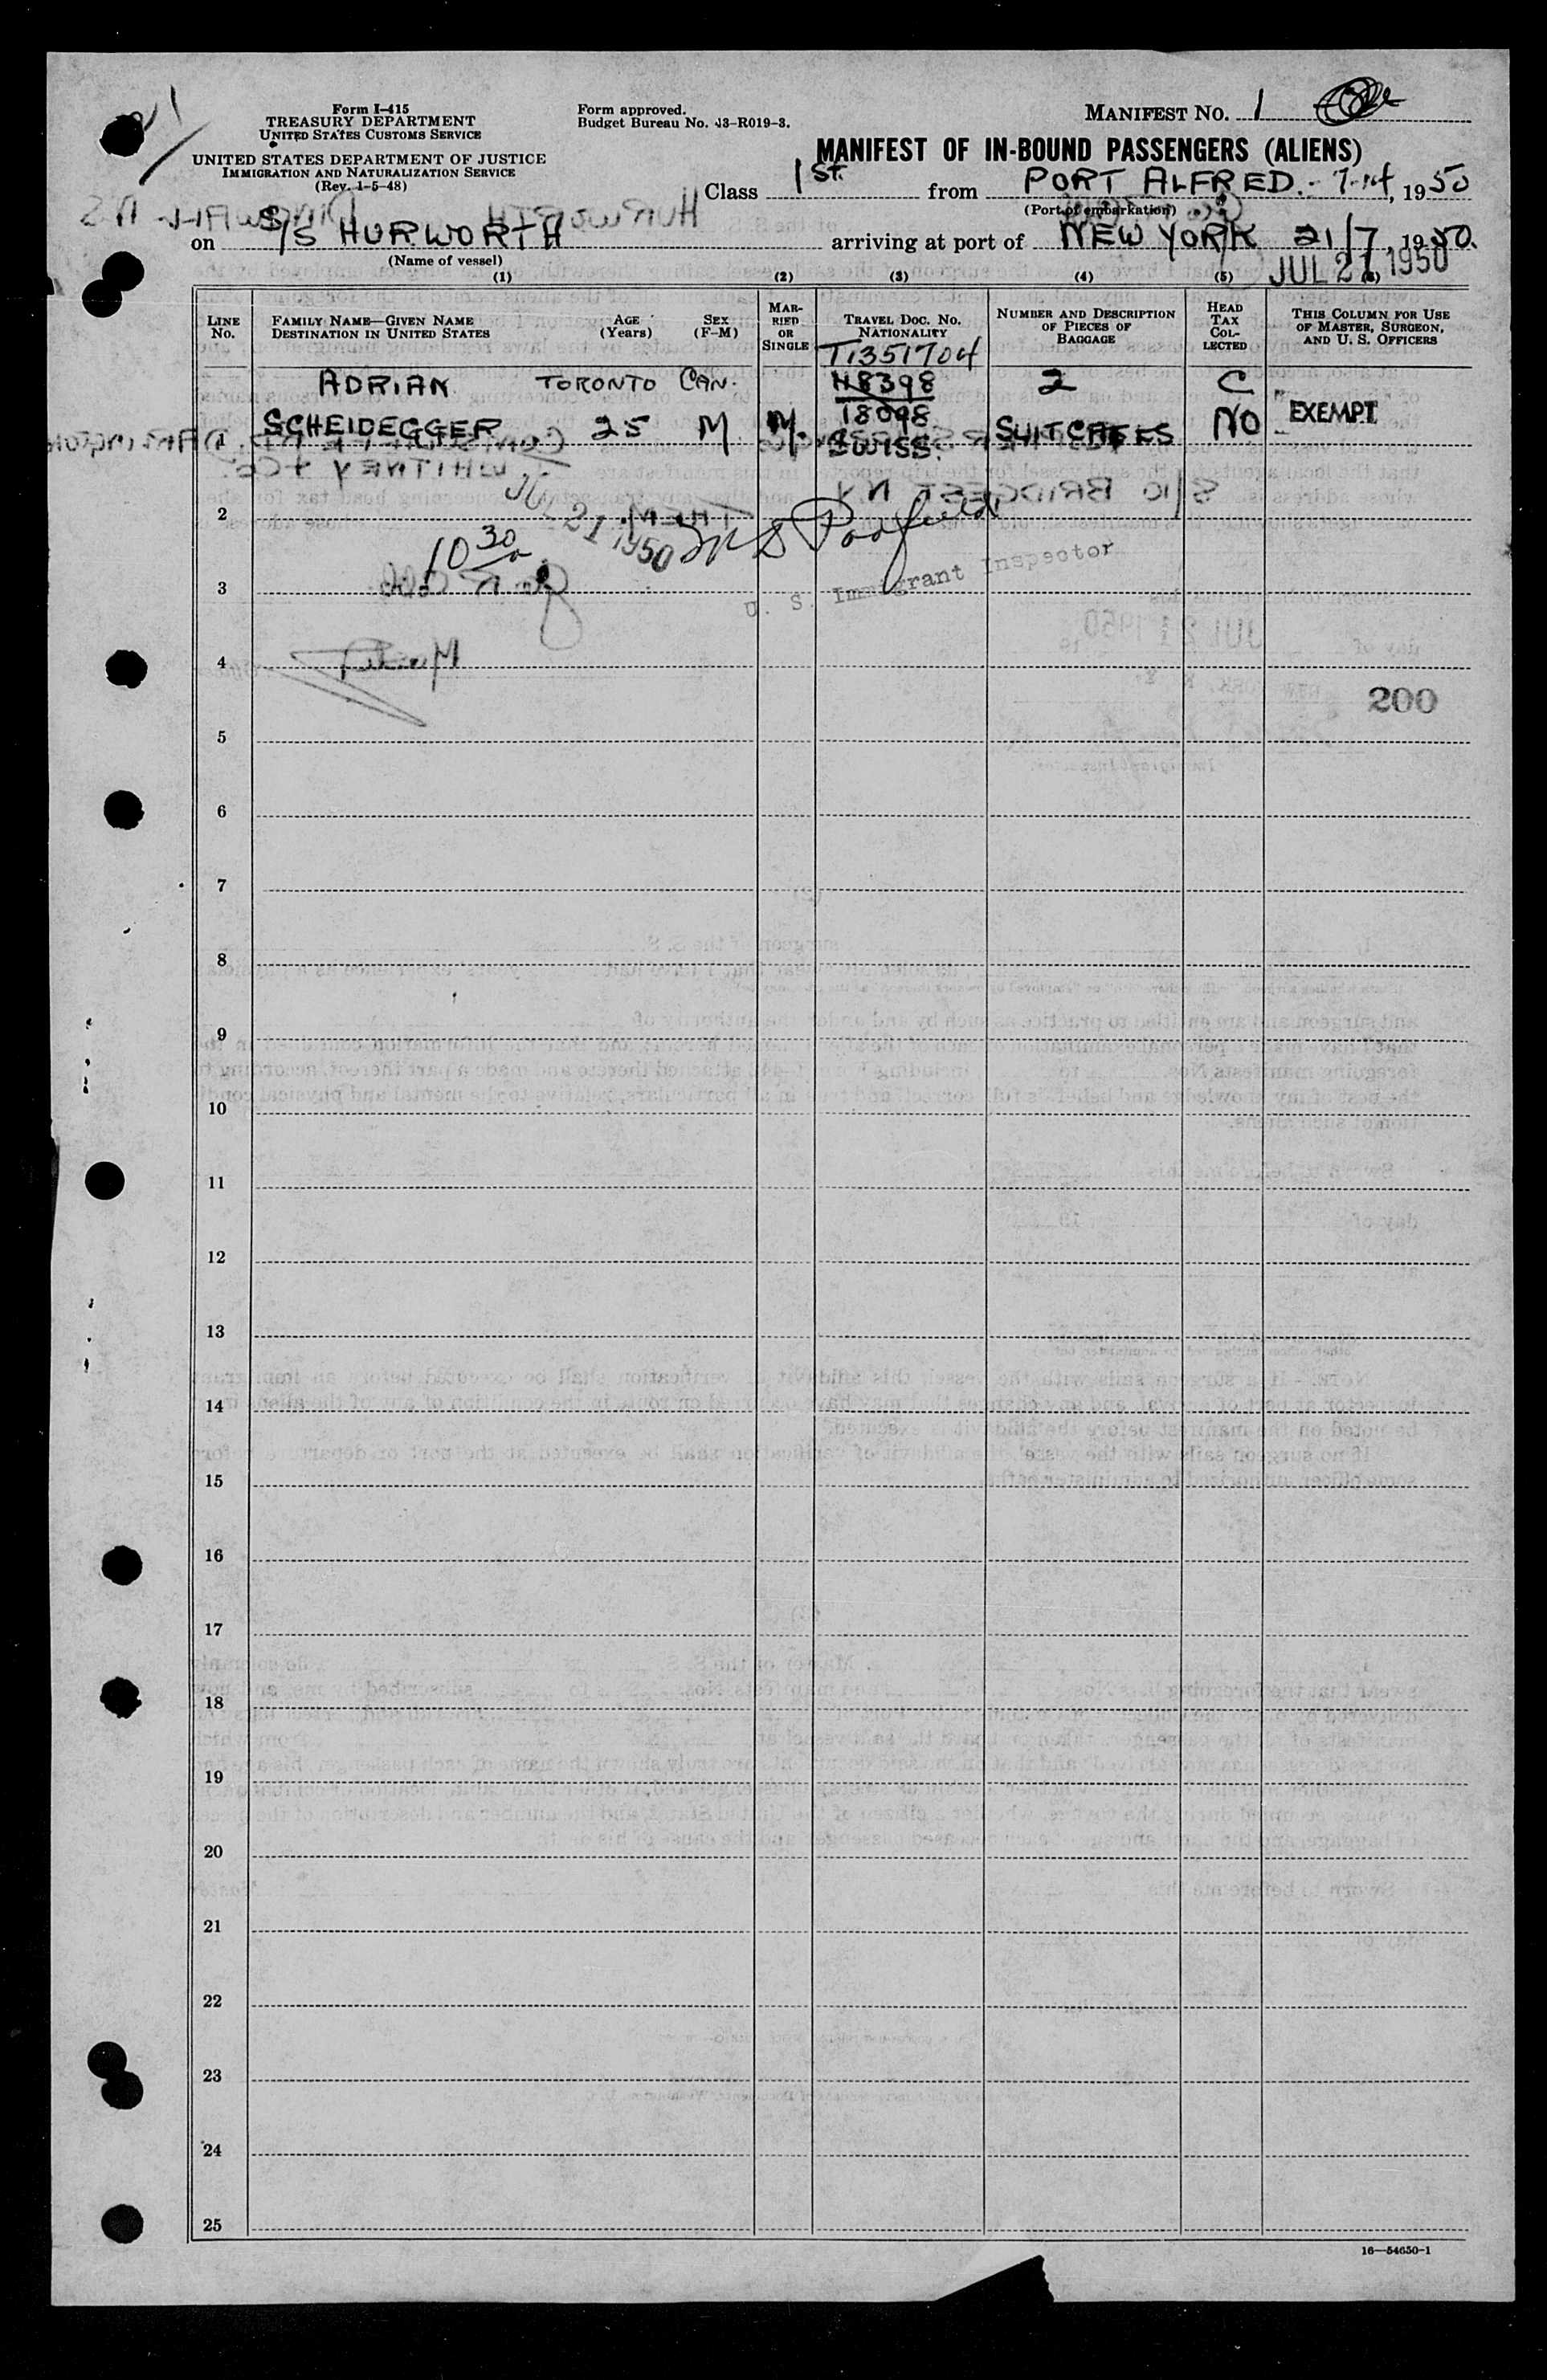 Form I-415
TREASURY DEPARTMENT
UNITED STATES CUSTOMS SERVICE
UNITED STATES DEPARTMENT OF JUSTICE
IMMIGRATION AND NATURALIZATION SERVICE
(Rev. 1-5-48)
Form approved.
Budget Bureau No. 43-R019-3.
MANIFEST NO. 1
MANIFEST OF IN-BOUND PASSENGERS (ALIENS)
Class 1ST. from PORT ALFRED. , 1950
(Port of embarkation)
on S/S HURWORTH arriving at port of NEW YORK 21/7, 1950.
(Name of vessel)
JUL 21 1950
(1) (2) (3) (4) (5) (6)
LINE NO.
FAMILY NAME—GIVEN NAME
DESTINATION IN UNITED STATES
AGE (Years)
SEX (F-M)
MARRIED OR SINGLE
TRAVEL DOC. NO.
NATIONALITY
NUMBER AND DESCRIPTION OF PIECES OF BAGGAGE
HEAD TAX COLLECTED
THIS COLUMN FOR USE OF MASTER, SURGEON, AND U. S. OFFICERS
T1351704
ADRIAN TORONTO CAN. 48398 2 C
1 SCHEIDEGGER 25 M M. 18098 SUITCASES NO EXEMPT
SWISS.
2
JUL 21 1950
10 30
U. S. Immigrant Inspector
3
4
200
5
6
7
8
9
10
11
12
13
14
15
16
17
18
19
20
21
22
23
24
25
16—54650-1